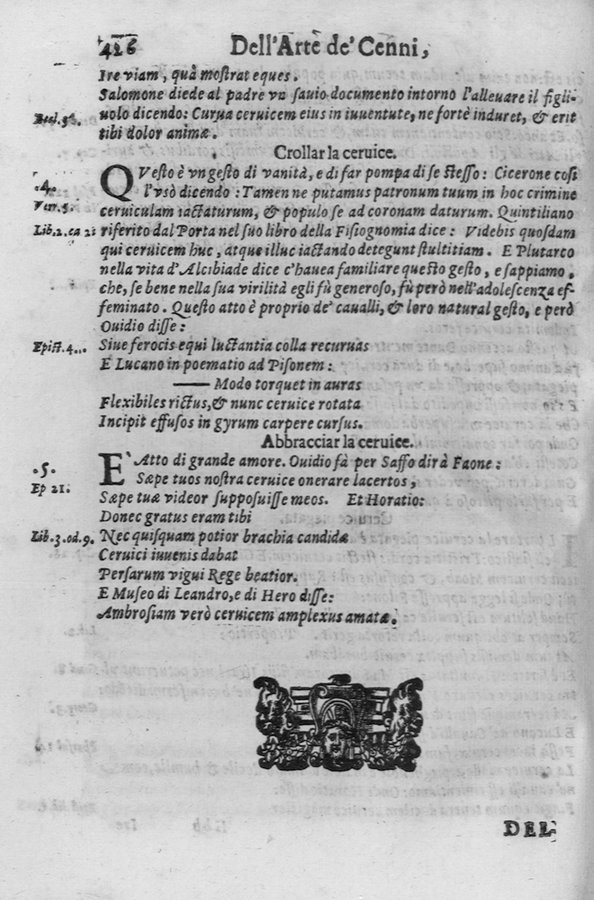 426 Dell'Arte de' Cenni,
Ire viam, quà moſtrat eques.
Salomone diede al padre vn ſauio documento intorno l'alleuare il figli-
uolo dicendo: Curua ceruicem eius in iuuentute, ne fortè induret, & erit
tibi dolor animæ.
Crollar la ceruice.
QVeſto è vn geſto di vanità, e di far pompa di ſe ſteſſo: Cicerone coſi
.4.
l'vsò dicendo: Tamen ne putamus patronum tuum in hoc crimine
Verr.5.
ceruiculam iactaturum, & populo ſe ad coronam daturum. Quintiliano
Lib.2.ca 2: riferito dal Porta nel ſuo libro della Fiſiognomia dice: Videbis quoſdam
qui ceruicem huc, atque illuc iactando detegunt ſtultitiam. E Plutarco
nella vita d'Alcibiade dice c'hauea familiare queſto geſto, e ſappiamo,
che, ſe bene nella ſua virilità egli fù generoſo, fù però nell'adoleſcenza ef-
feminato. Queſto atto è proprio de' caualli, & loro natural geſto, e però
Ouidio diſſe:
Epiſt.4. Siue ferocis equi luctantia colla recuruas
E Lucano in poematio ad Piſonem:
—— Modo torquet in auras
Flexibiles rictus, & nunc ceruice rotata
Incipit effuſos in gyrum carpere curſus.
Abbracciar la ceruice.
.5.
E' Atto di grande amore. Ouidio fà per Saffo dir à Faone:
Ep 21.
Sæpe tuos noſtra ceruice onerare lacertos,
Sæpe tuæ videor ſuppoſuiſſe meos. Et Horatio:
Donec gratus eram tibi
Lib.3.od.9. Nec quiſquam potior brachia candidæ
Ceruici iuuenis dabat
Perſarum vigui Rege beatior.
E Muſeo di Leandro, e di Hero diſſe:
Ambroſiam verò ceruicem amplexus amatæ.
DEL